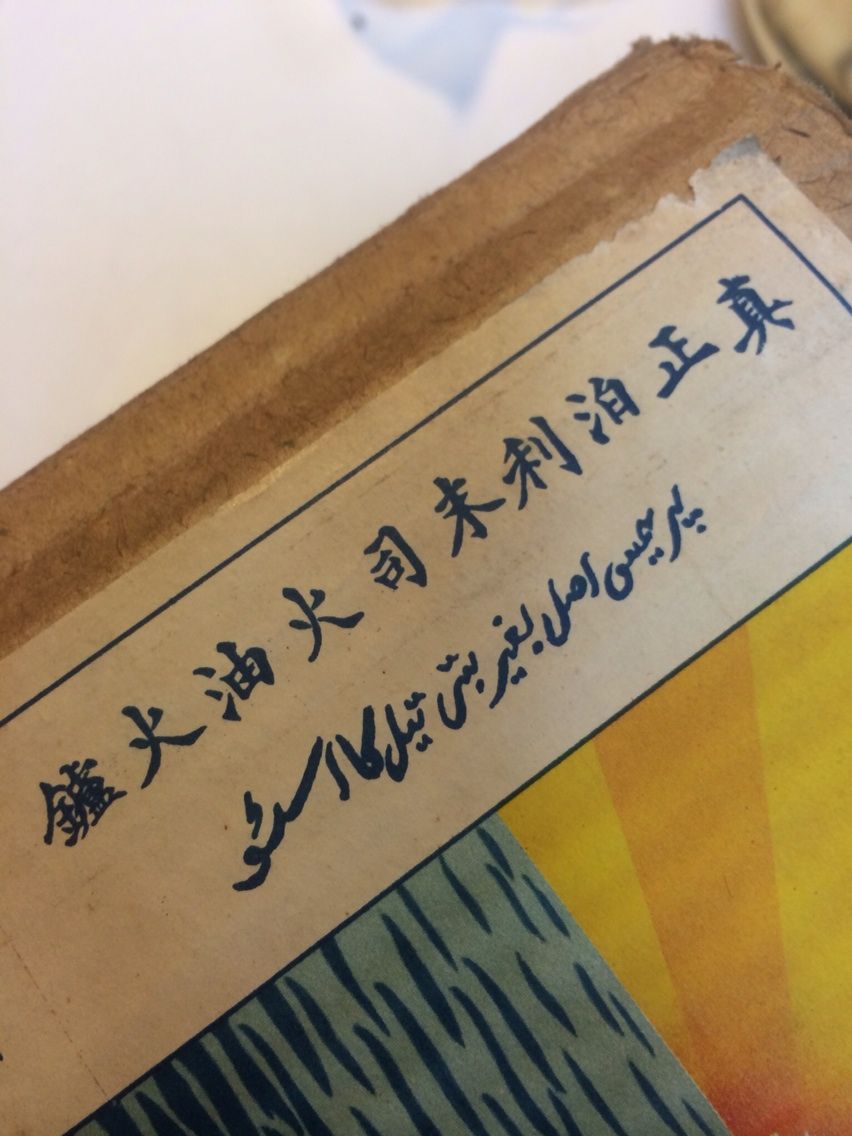 真正泊利末司火油火鑪
پریمس اصل بغیر بتی تیل کا اسٹو